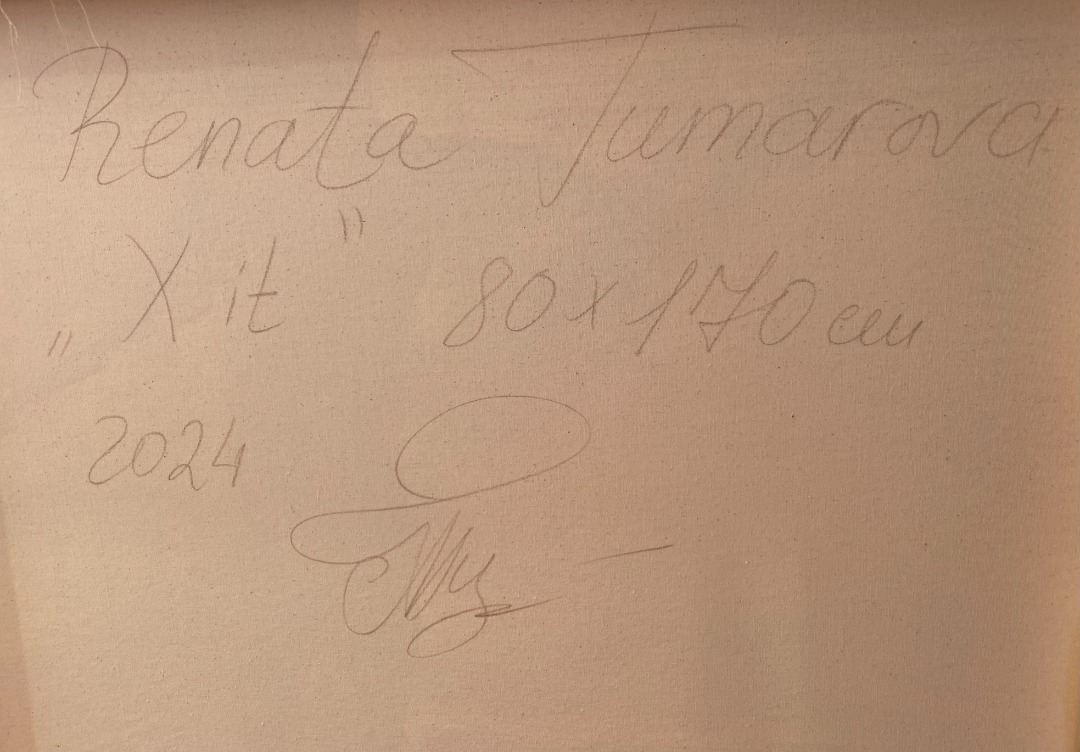 Renata Tumarova
„Xit" 80x170 cm
2024